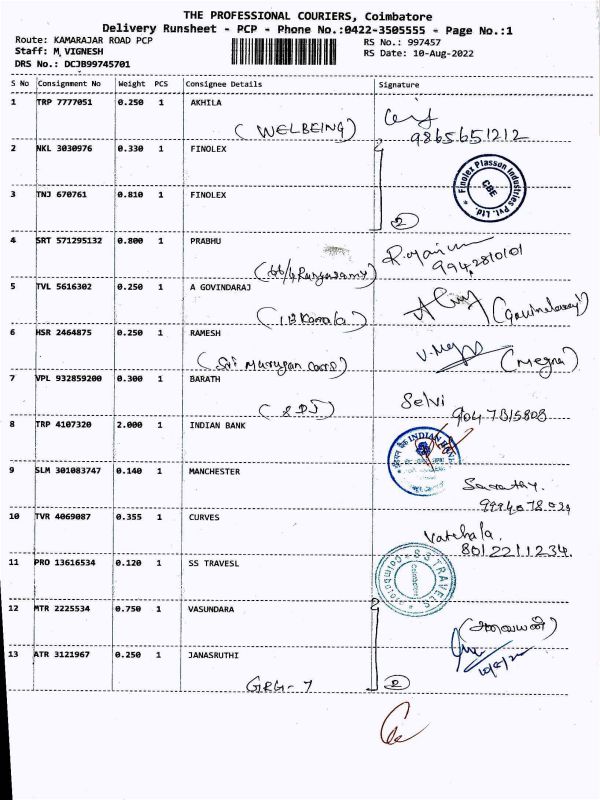 THE PROFESSIONAL COURIERS, Coimbatore
Delivery Runsheet - PCP - Phone No.:0422-3505555 - Page No.:1
Route: KAMARAJAR ROAD PCP
Staff: M VIGNESH
DRS No.: DCJB99745701
RS No.: 997457
RS Date: 10-Aug-2022
S No Consignment No Weight PCS Consignee Details Signature
1 TRP 7777051 0.250 1 AKHILA
(WELBEING) 9865651212
2 NKL 3030976 0.330 1 FINOLEX
Finolex Plasson Industries Pvt. Ltd. * CBE
3 TNJ 670761 0.810 1 FINOLEX
2
4 SRT 571295132 0.800 1 PRABHU
9942810101
5 TVL 5616302 0.250 1 A GOVINDARAJ
6 HSR 2464875 0.250 1 RAMESH
(Sri Murugan Corp) (Megna)
7 VPL 932859200 0.300 1 BARATH
Selvi
8 TRP 4107320 2.000 1 INDIAN BANK
INDIAN BANK
9 SLM 301083747 0.140 1 MANCHESTER
10 TVR 4069087 0.355 1 CURVES
8012211234.
11 PRO 13616534 0.120 1 SS TRAVESL
SS TRAVELS * Coimbatore
12 MTR 2225534 0.750 1 VASUNDARA
13 ATR 3121967 0.250 1 JANASRUTHI
GRG - 7 2